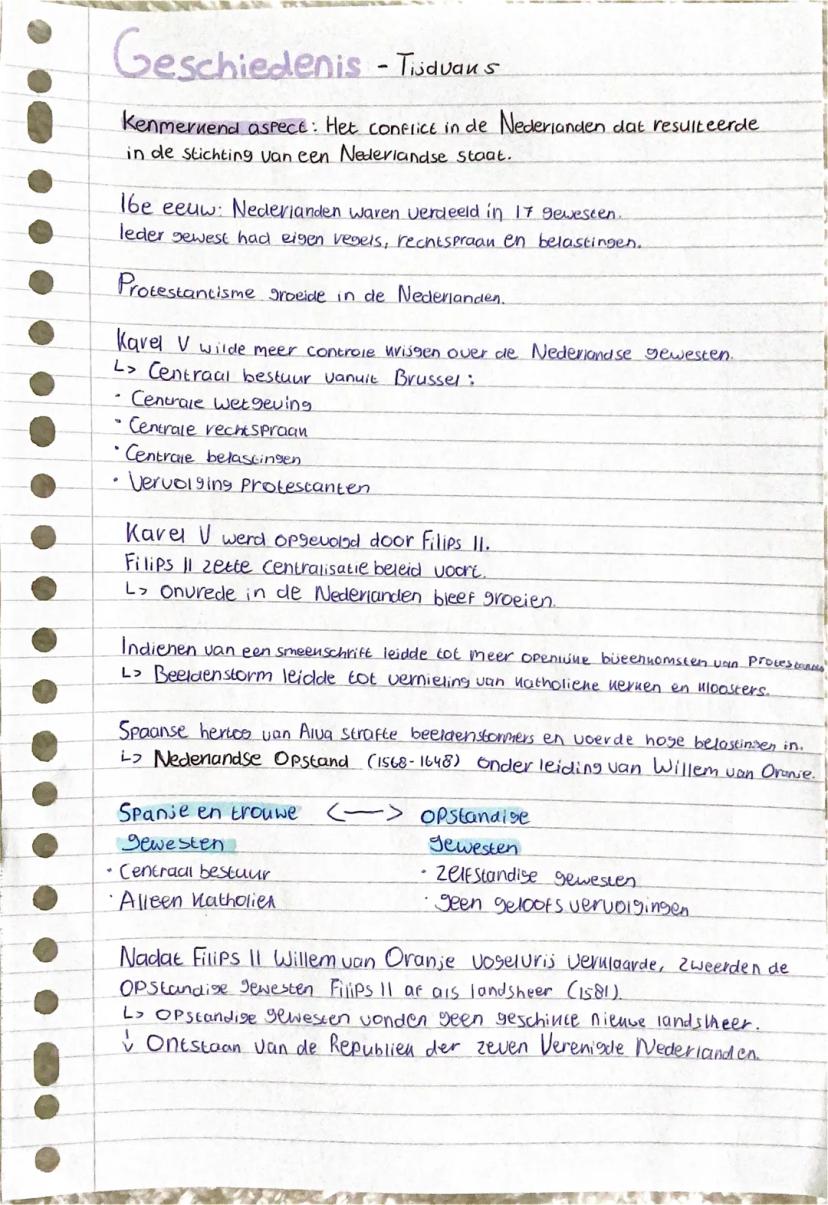 Geschiedenis - Tijdvak 5
Kenmerkend aspect: Het conflict in de Nederlanden dat resulteerde
in de stichting van een Nederlandse staat.
16e eeuw: Nederlanden waren verdeeld in 17 gewesten.
Ieder gewest had eigen regels, rechtspraak en belastingen.
Protestantisme groeide in de Nederlanden.
Karel V wilde meer controle krijgen over de Nederlandse gewesten.
↳ Centraal bestuur vanuit Brussel:
• Centrale wetgeving
• Centrale rechtspraak
• Centrale belastingen
• Vervolging Protestanten
Karel V werd opgevolgd door Filips II.
Filips II zette centralisatiebeleid voort.
↳ Onvrede in de Nederlanden bleef groeien.
Indienen van een smeekschrift leidde tot meer openlijke bijeenkomsten van Protestanten
↳ Beeldenstorm leidde tot vernieling van katholieke kerken en kloosters.
Spaanse hertog van Alva strafte beeldenstormers en voerde hoge belastingen in.
↳ Nederlandse Opstand (1568-1648) onder leiding van Willem van Oranje.
Spanje en trouwe <--> opstandige
gewesten gewesten
• Centraal bestuur • zelfstandige gewesten
• Alleen katholiek • geen geloofsvervolgingen
Nadat Filips II Willem van Oranje vogelvrij verklaarde, zweerden de
opstandige gewesten Filips II af als landsheer (1581).
↳ opstandige gewesten vonden geen geschikte nieuwe landsheer.
↓ Ontstaan van de Republiek der zeven Verenigde Nederlanden.